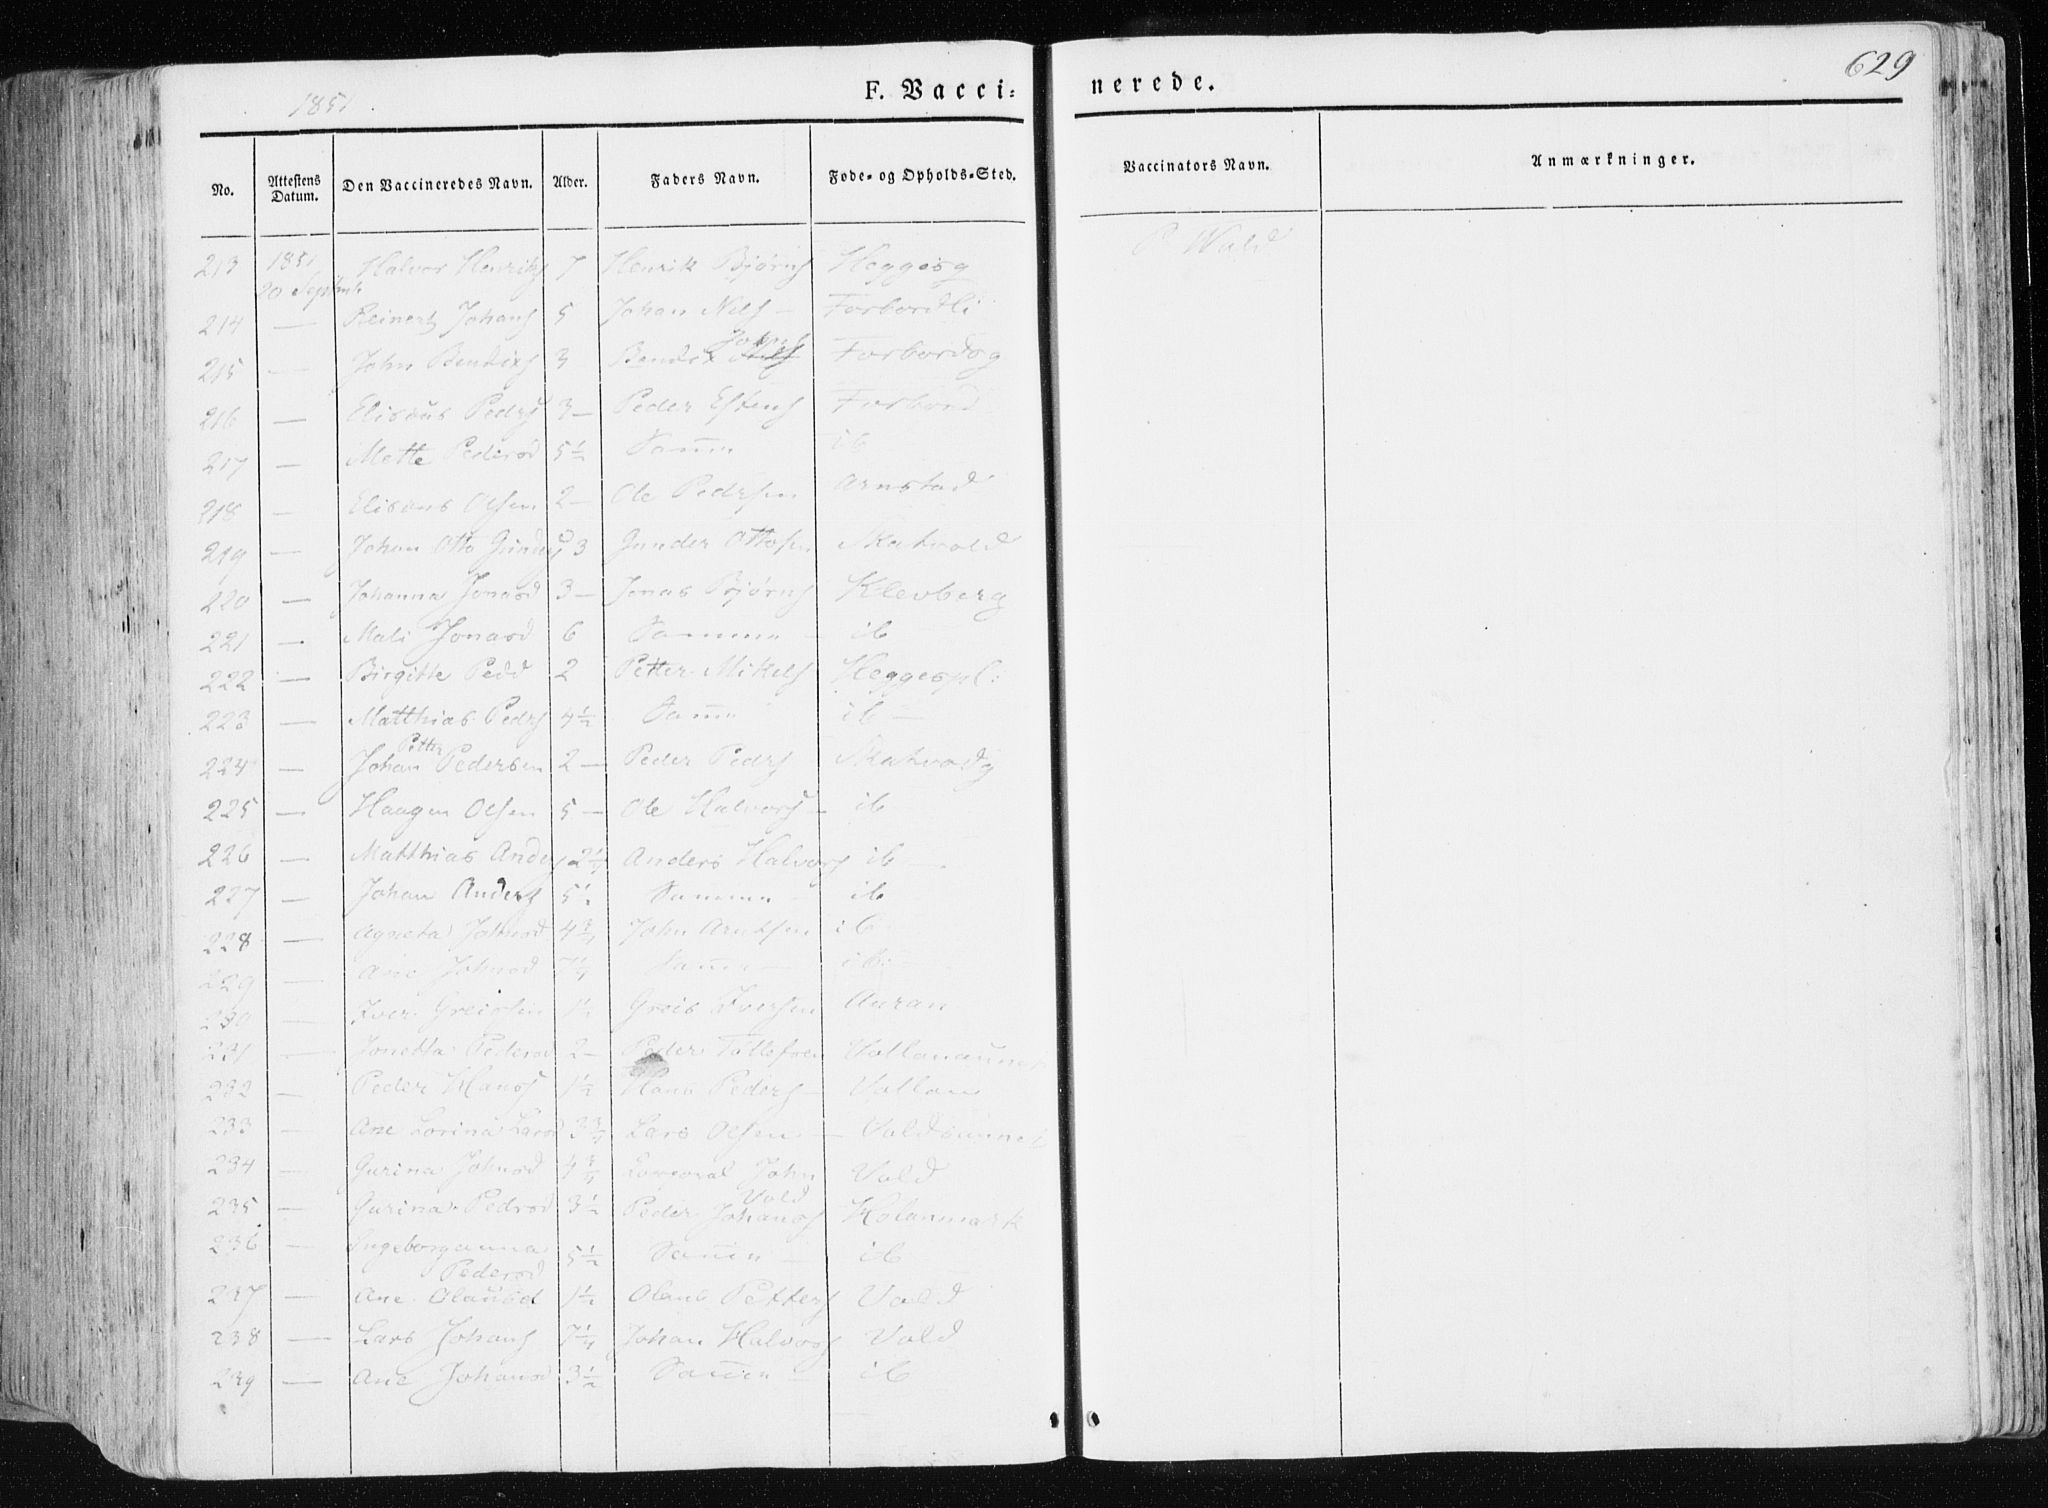 629
1851
F. Vacci= nerede.
No. Attestens Datum. Den Vaccineredes Navn. Alder. Faders Navn. Føde- og Opholds-Sted. Vaccinators Navn. Anmærkninger.
213 1851 20 Septembr Halvor Henriks 7 Henrik Bjørns Heggesg P Wald
214 — Reinert Johans 5 Johan Nils — Forbordli
215 — John Bendixs 3 Bendix Johns Forbordsg
216 — Elisæus Peders 3 — Peder Estens Forbord
217 — Mette Pedersd 5½ Samme ib
218 — Elisæus Olsen 2 — Ole Pedersen Arnstad
219 — Johan Otto Gunders 3 Gunder Ottosen Skatvold
220 — Johanna Jonasd 3 — Jonas Bjørns Klevberg
221 — Mali Jonasd 6 Samme — ib
222 — Birgitte Pedd 2 Petter Mikels Heggespl:
223 — Matthias Peders 4½ Samme ib —
224 — Johan Petter Pedersen 2 — Peder Peders Skatvoldg
225 — Haagen Olsen 5 — Ole Halvors — ib
226 — Matthias Anders 2¼ Anders Halvors ib
227 — Johan Anders 5½ Samme — ib
228 — Agneta Johnsd 4¾ John Arntsen ib
229 — Ane Johnsd 7¼ Samme — ib
230 — Iver Greisen 1½ Greis Iversen Auran
231 — Jonetta Pedersd 2 — Peder Tollefsen Vollanaunet
232 — Peder Hans 1½ Hans Peders — Vollan
233 — Ane Lorina Larsd 3¾ Lars Olsen — Valdsaunet
234 — Gurina Johnsd 4¾ Corporal John Vald Vald
235 — Gurina Pedersd 3½ Peder Johans Holanmark
236 — Ingeborganna Pedersd 5½ Samme — ib
237 — Ane Olausd 1½ Olaus Petters Vald
238 — Lars Johans 7¼ Johan Halvors Vald
239 — Ane Johansd 3½ Samme — ib